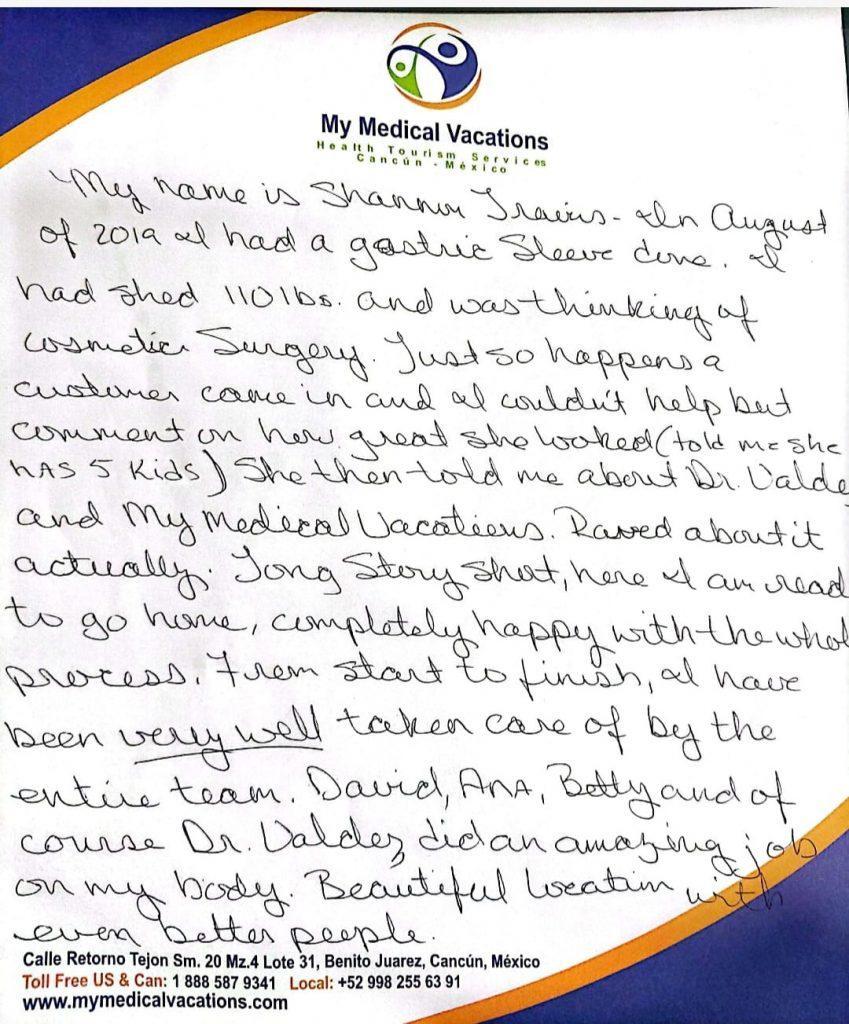 My Medical Vacations
Health Tourism Services
Cancún - México
My name is Shannon Travis - In August
of 2019 I had a gastric Sleeve done. I
had shed 110 lbs. and was thinking of
cosmetic Surgery. Just so happens a
customer came in and I couldn't help but
comment on how great she looked (told me she
HAS 5 KidS) She then told me about Dr. Valde
and My Medical Vacations. Raved about it
actually. Long Story Short, here I am read
to go home, completely happy with the whol
process. From start to finish, I have
been very well taken care of by the
entire team. David, ANA, Betty and of
course Dr. Valdez did an amazing job
on my body. Beautiful location with
even better people.
Calle Retorno Tejon Sm. 20 Mz.4 Lote 31, Benito Juarez, Cancún, México
Toll Free US & Can: 1 888 587 9341 Local: +52 998 255 63 91
www.mymedicalvacations.com